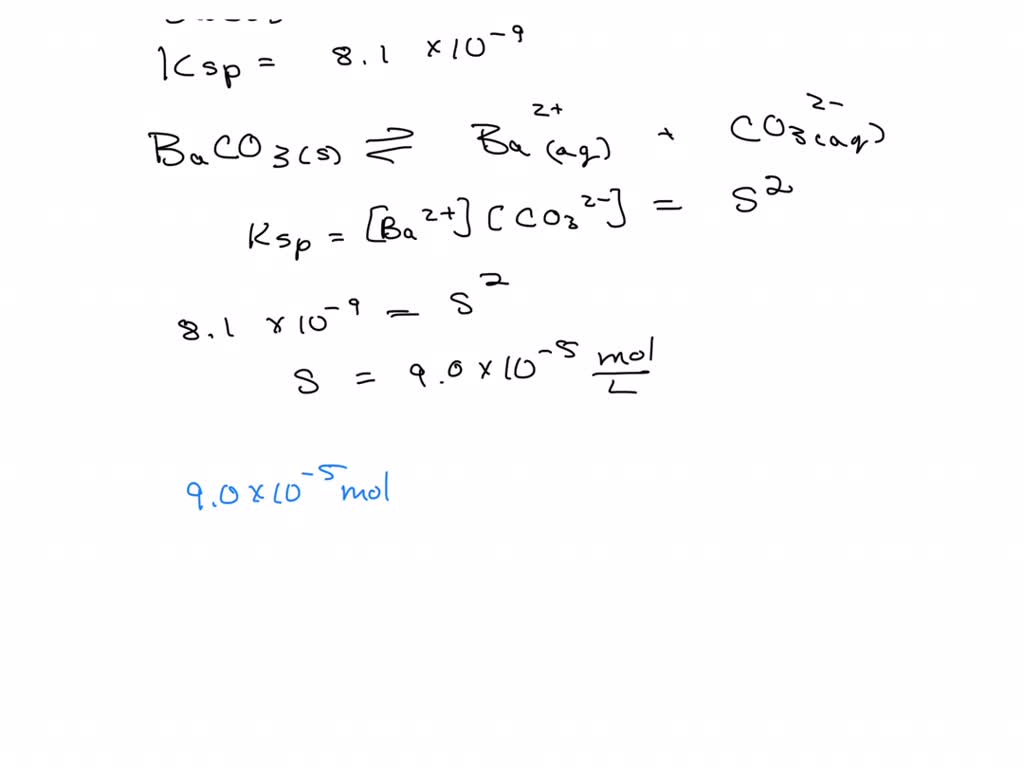 Ksp = 8.1 × 10⁻⁹
BaCO₃(s) ⇌ Ba²⁺(aq) + CO₃²⁻(aq)
Ksp = [Ba²⁺][CO₃²⁻] = S²
8.1 × 10⁻⁹ = S²
S = 9.0 × 10⁻⁵ mol/L
9.0 × 10⁻⁵ mol